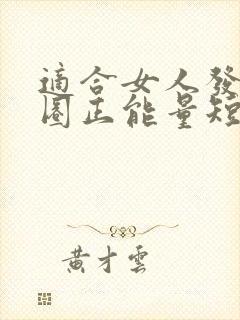 適合女人發
圈正能量短
黄才雲